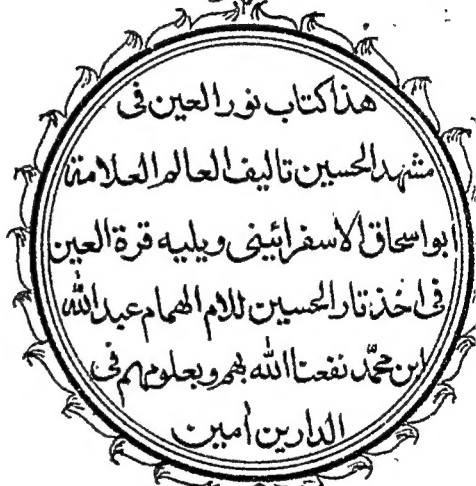 هذا كتاب نور العين فى
مشهد الحسين تاليف العالم العلامة
ابواسحاق الاسفرائينى ويليه قرة العين
فى اخذ ثار الحسين للام الهمام عبدالله
ابن محمّد نفعنا الله بهم وبعلومهم فى
الدارين امين